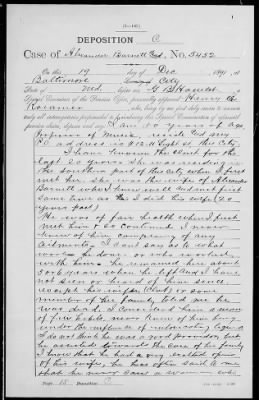 DEPOSITION C
Case of Alexander Barnett, No. 5452
On this 19 day of Dec, 189
Baltimore City
State of Md., before me, G. B.
Special Examiner of the Pension Office, personally appeared Henry
who, being by me first duly sworn to
answer truly all interrogatories propounded to him during this Special Examination of aforesaid
pension claim, deposes and says: I am 50 years of age
Professor of Music, reside
P.O. address St this City.
I have known the clmt for the
last 20 years. She was residing in
the southern part of this City when I first
met her. She was the wife of Alexander
Barnett whom I knew well and met first
same time as I did his wife (20
years past)
He was of fair health when I first
met him & so continued. I never
knew of him complaining of any
ailments. I can't say as to what
work he done or who worked
with him. He remained here about
5 or 6 years when he left and I have
not seen or heard of him since
except his wife (clmt) or some
member of her family told me he
was dead. I considered him a man
of fine habits, never knew of him being
under the influence of intoxicating liquor
I do not think he was a good provider, but
he assisted towards the care of his family
I know that he had a very exalted opinion
of his wife, he has often said to me
that he never knew a woman who
Deposition C